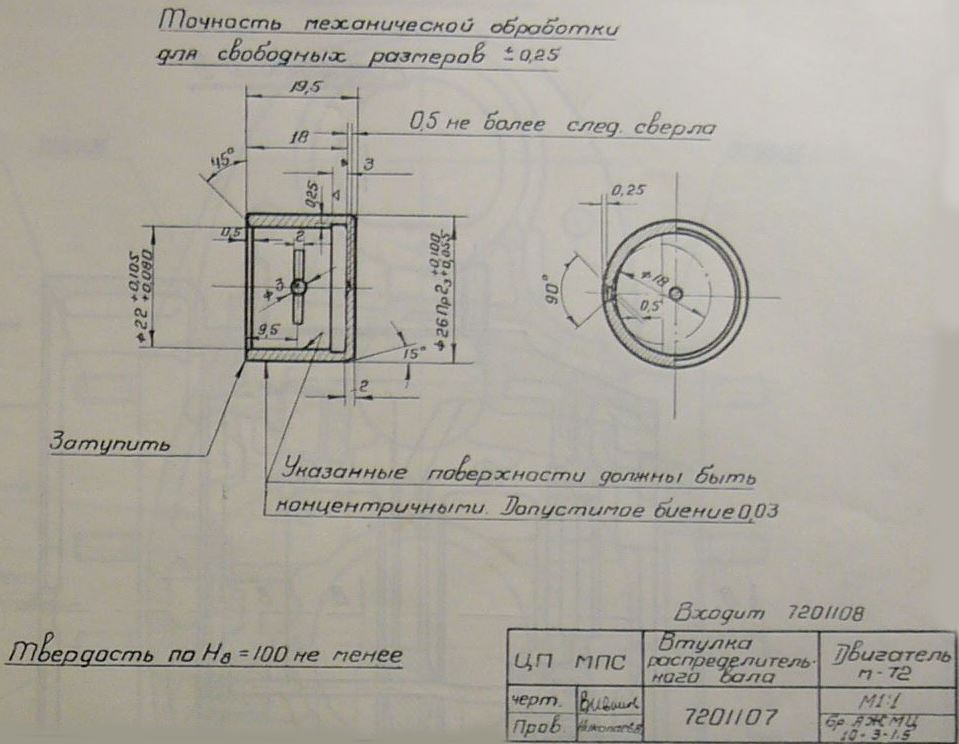 Точность механической обработки
для свободных размеров ± 0,25
19,5
0,5 не более след. сверла
18
45°
3
0,25
0,25
0,5
2
ф 22 +0,105 +0,080
ф 3
ф 26 Пр2₃ +0,100 +0,055
90°
ф 18
0,5
9,5
15°
2
Затупить
Указанные поверхности должны быть
концентричными. Допустимое биение 0,03
Входит 7201108
Твердость по Нв = 100 не менее
ЦП МПС
Втулка
распределитель-
ного вала
Двигатель
м-72
черт.
Пров.
7201107
М1:1
бр АЖМЦ
10-3-1.5